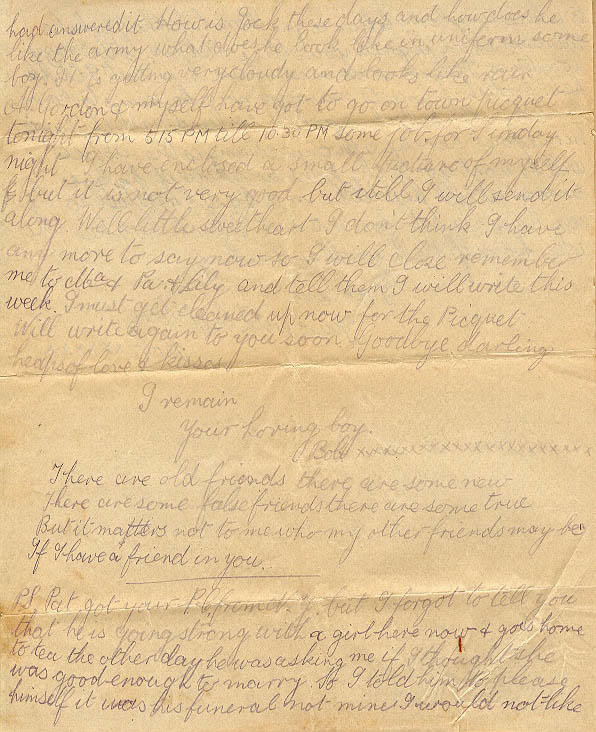 had answered it How is Jock these days and how does he
like the army what does he look like in uniform some
boy. It is getting very cloudy and looks like rain
Gordon & myself have got to go on town picquet
tonight from 515 PM till 10.30 PM some job for Sunday
night I have enclosed a small picture of myself
but it is not very good but still I will send it
along. Well little sweetheart I don't think I have
any more to say now so I will close remember
me to Ma & Pa & Lily and tell them I will write this
week. I must get cleaned up now for the Picquet
Will write again to you soon Goodbye darling
heaps of love & kisses
I remain
Your Loving boy.
Bob xxxxxxxxxxxxxxxxxxxx
There are old friends there are some new
There are some false friends there are some true
But it matters not to me who my other friends may be
If I have a friend in you.
P.S. Pat got your P.C from but I forgot to tell you
that he is going strong with a girl here now & goes home
to tea the other day he was asking me if I thought she
was good enough to marry. So I told him to please
himself it was his funeral not mine I would not like